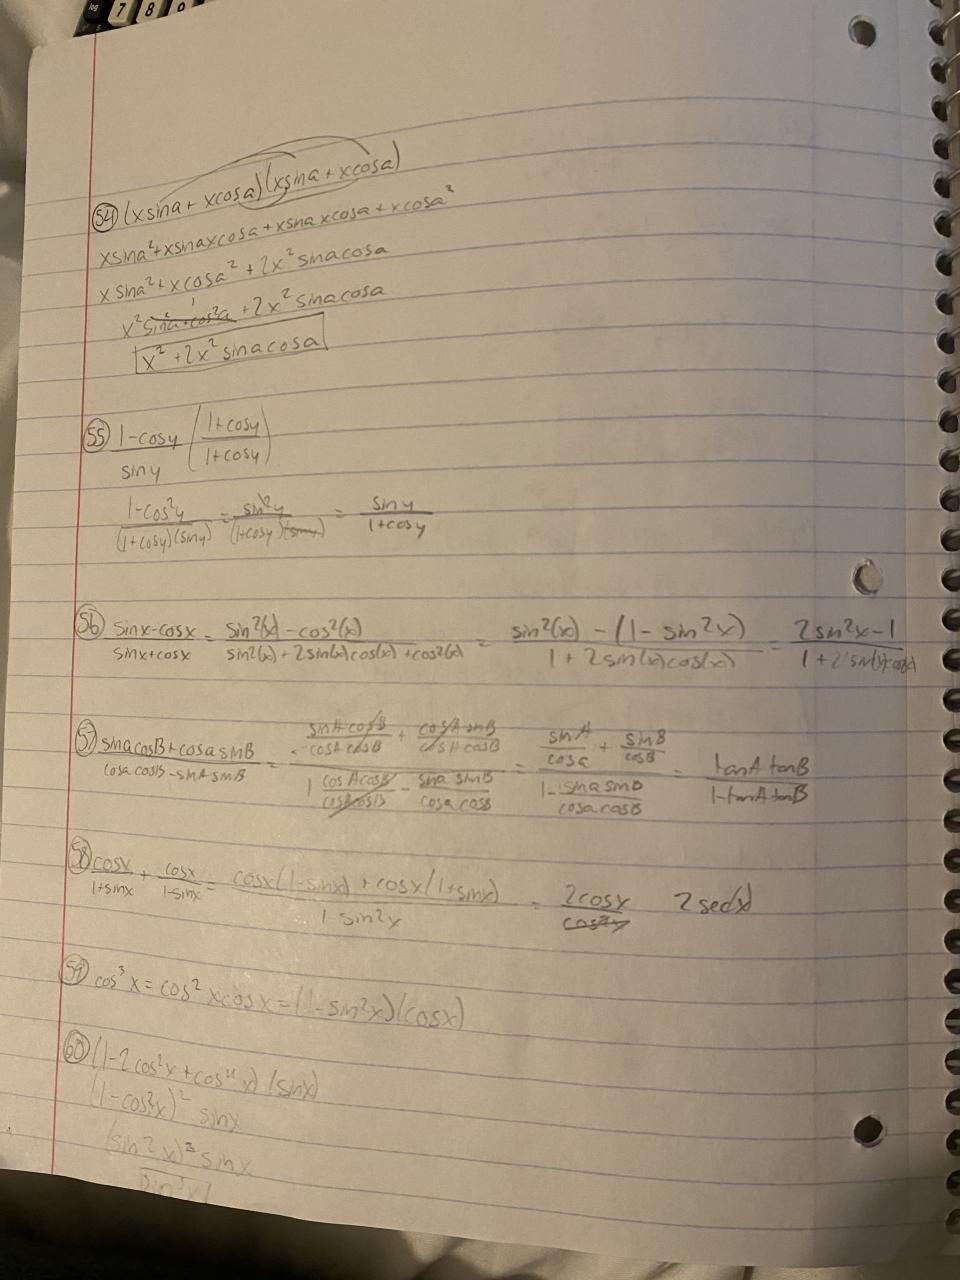 log 7 8 9
54 (xsina + xcosa)(xsina + xcosa)
xsina² + xsinaxcosa + xsinaxcosa + xcosa²
xsina² + xcosa² + 2x²sinacosa
x² sin²a + cos²a 1 + 2x² sinacosa
x² + 2x² sinacosa
55 1-cosy/siny (1+cosy/1+cosy)
1-cos²y/(1+cosy)(siny) = sin²y/(1+cosy)(siny) = siny/1+cosy
56 sinx-cosx/sinx+cosx = sin²(x) - cos²(x)/sin²(x) + 2sin(x)cos(x) + cos²(x) = sin²(x) - (1 - sin²x)/1 + 2sin(x)cos(x) = 2sin²x-1/1 + 2sin(x)cos(x)
57 sinacosB + cosasinB/cosacosB - sinAsinB = sinAcosB/cosAcosB + cosAsinB/cosAcosB / 1 cosAcosB/cosAcosB - sinasinB/cosacosB = sinA/cosa + sinB/cosB / 1 - sinasinB/cosacosB = tanAtanB/1-tanAtanB
58 cosx/1+sinx + cosx/1-sinx = cosx(1-sinx) + cosx(1+sinx)/1-sin²x = 2cosx/cos²x 2sec(x)
59 cos³x = cos²xcosx = (1-sin²x)(cosx)
60 (1-2cos²x + cos⁴x)(sinx)
(1-cos²x)² sinx
(sin²x)² sinx